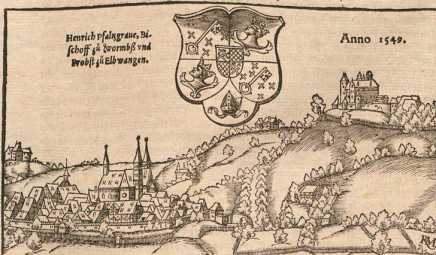 Henrich Pfalzgraue, Bi-
schoff zů Wormbß vnd
Probst zů Elbwangen.
Anno 1549.